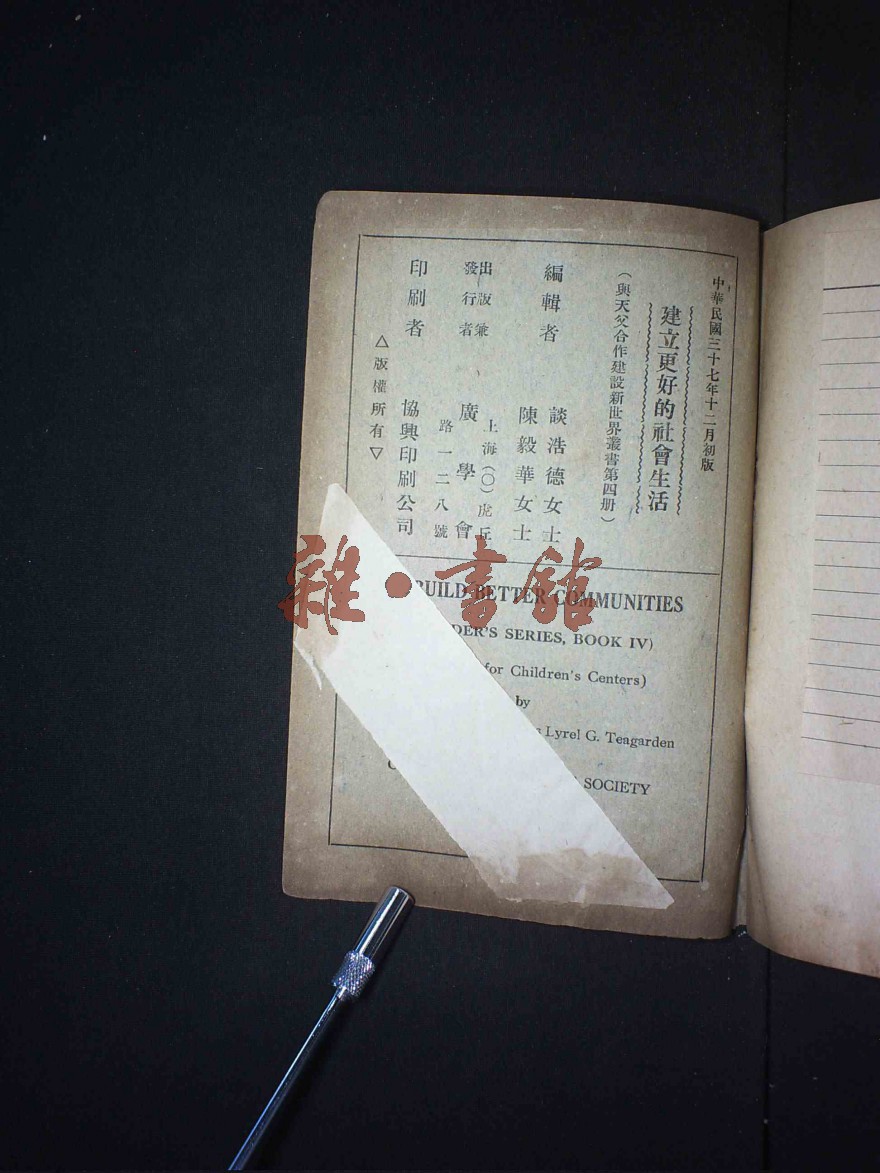 中華民國三十七年十二月初版
建立更好的社會生活
（與天父合作建設新世界叢書第四册）
編輯者
談浩德女士
陳毅華女士
出版兼
發行者
廣學會
上海（○）虎丘
路一二八號
印刷者
協興印刷公司
△版權所有▽
BUILD BETTER COMMUNITIES
DER'S SERIES, BOOK IV)
for Children's Centers)
by
Lyrel G. Teagarden
SOCIETY
雜·書館